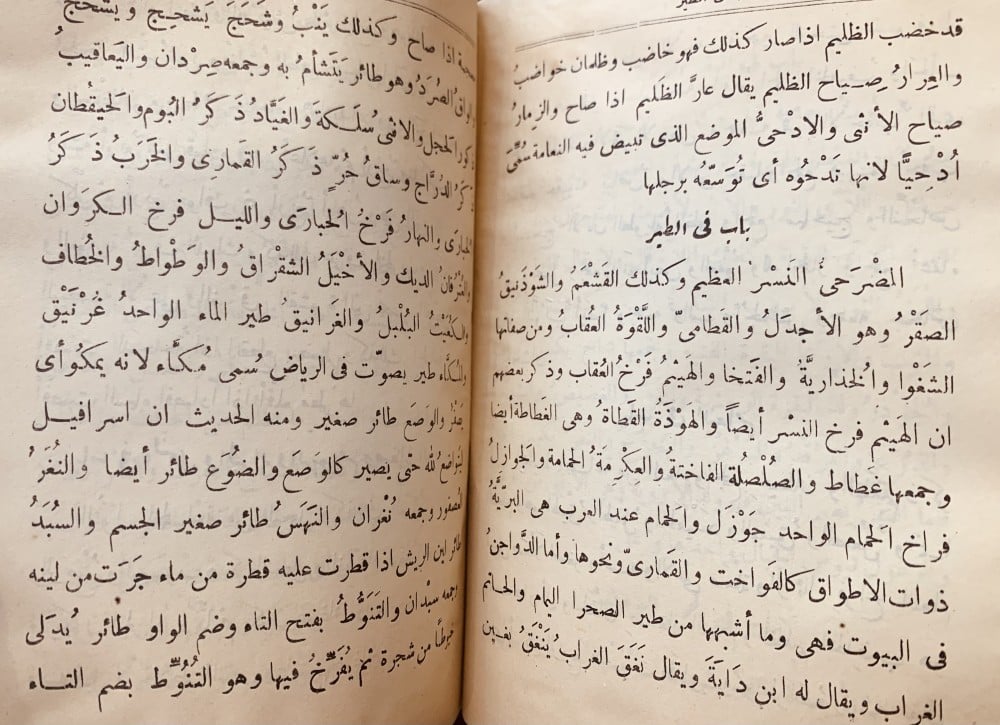 قد خضب الظليم اذا صار كذلك فهو خاضب وظلمان خواضبُ
والعِرارُ صِـيـاح الظليم يقال عارَّ الظَليم اذا صاح والزِمارُ
صياح الأنثى والادْحىُّ الموضع الذى تبيض فيه النعامة سُمَّىَ
أُدْحِيًّا لانها تَدْحُوه أى تُوَسّعّهُ برجلها
باب فى الطير
المَضْرَحىُّ النَسْرُ العظيم وكذلك القَشْعَمُ والشَوْذَنيقُ
الصقَرُْ وهو الأَجدَلُ والقَطامىّ واللَّقْوَةُ العُقابُ ومن صفاتها
الشَغْوا والخُدارِيةُ والفَتخا والهَيثمُ فَرْخُ العُقاب وذكر بعضهم
ان الهَيثم فرخ النسْر أيضاً والهَوْذَةُ القَطاةُ وهى الغَطاطة أيضا
وجمعها غَطاط والصُلْصُلة الفاختةُ والعِكْرِمةُ الحمامة والجَوازلُ
فراخ الحَمام الواحد جَوْزَل والحَمام عند العرب هى البَرّيَّةُ
ذوات الاطواق كالفَواخت والقَمارىّ ونحوها وأما الدَّواجنُ
فى البيوت فهى وما أشبهها من طير الصحرا اليمام والحاتم
الغراب ويقال له ابن دَايَةَ ويقال نَغَقَ الغرابُ يَنْغَقُ بغـين
اذا صاح وكذلك يَنْبُ وشَحَجَ يَشْحِـج ويَشْحَج
الصُرَدُ وهو طائر يَتَشأم به وجمعه صِرْدان واليَعاقيبُ
الحجل والانثى سُلَـكة والغَيَّادُ ذَكَرُ البُوم والحَيقُطان
ذَكَرُ الدُرَّاج وساقُ حُرٍّ ذَكَرُ القَمارى والخَرَبُ ذَكَرُ
الحُبارَى والنهارُ فَرْخُ الحُبارَى والليـل فرخ الـكرَوان
الديك والأَخْيَلُ الشقْراق والوَطْواطُ والخُطاف
والكُعَيْتُ البُلْبلُ والغَرانيقُ طير الماء الواحدُ غَُرْنَيْق
والمُكَّاء طير يصوّت فى الرياض سُمى مُكَّاء لانه يمكو أى
يَصْفُرُ والوَصَع طائر صغير ومنه الحديث ان اسرافيـل
ليَتواضع لله حتى يصير كالوَصَع والضُوَع طائر أيضا والنُغَرُ
العُصفور وجمعه نُغْران والنَهَسُ طائر صغير الجسم والسُبَدُ
طائر لين الريش اذا قطرت عليه قطرة من ماء جَرَت من لينه
وجمعه سِبْدان والتَنَوُّطُ بفتح التاء وضم الواو طائر يُدَلى
خيوطاً من شجرة ثم يُفَرّخُ فيها وهو التُنُوّط بضم التـاء